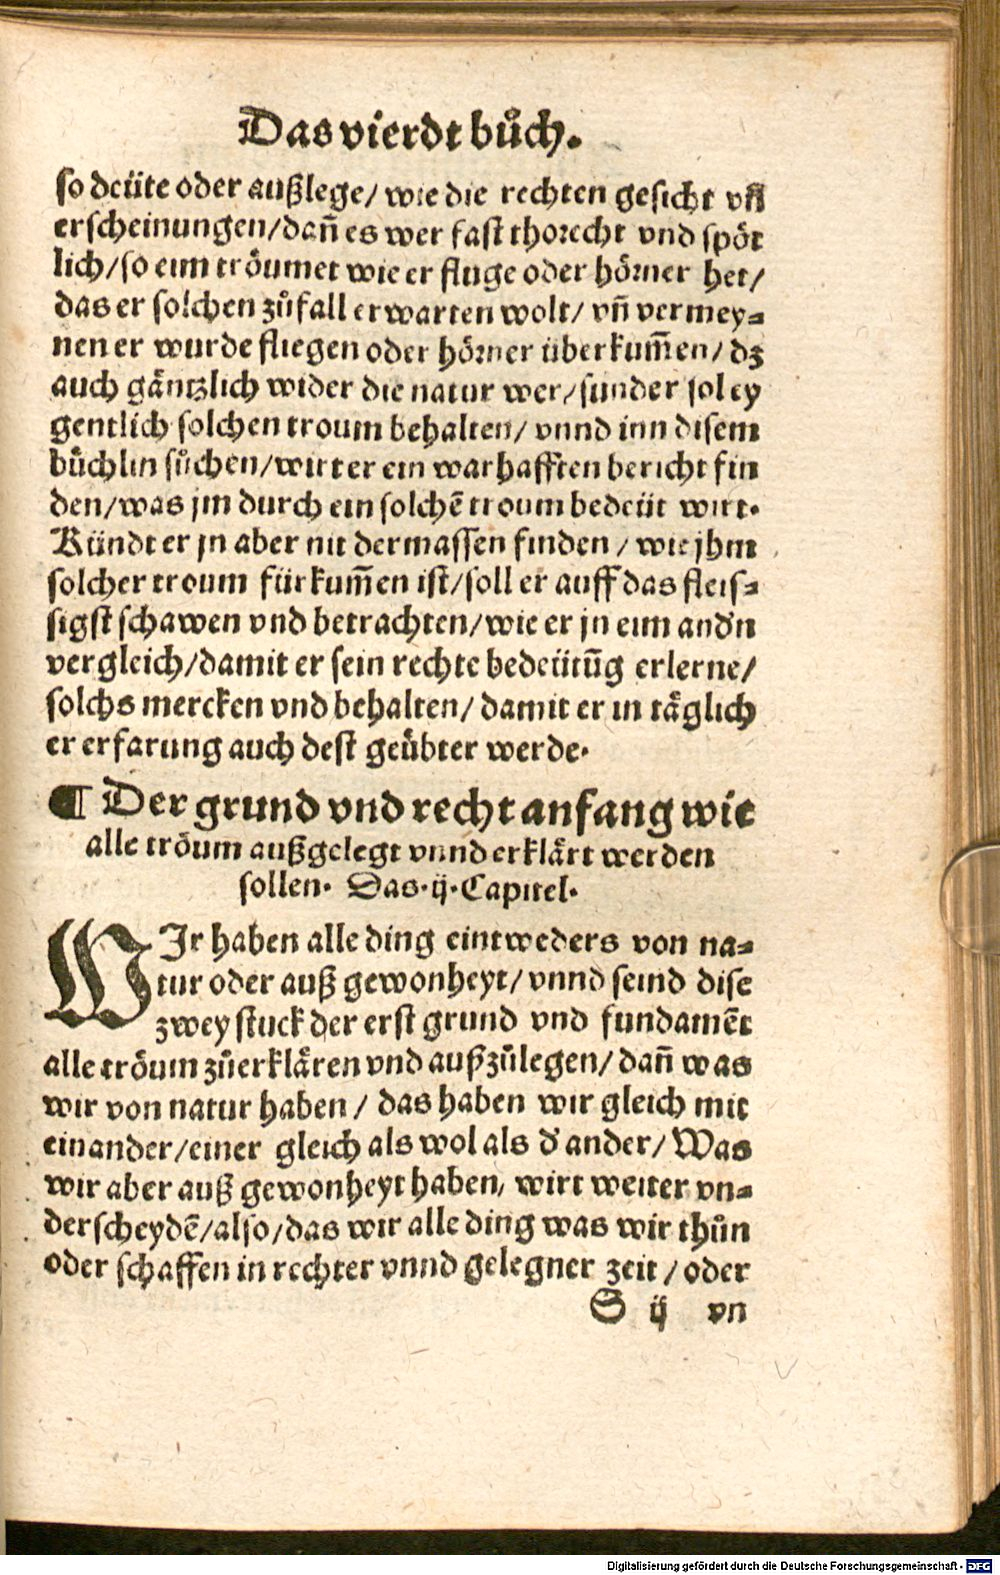 Das vierdt bůch.
so deüte oder außlege/ wie die rechten gesicht vñ
erscheinungen/dañ es wer fast thorecht vnd spöt
lich/so eim tröumet wie er fluge oder hörner het/
das er solchen zůfall erwarten wolt/ vñ vermey⸗
nen er wurde fliegen oder hörner überkum̃en/ dz
auch gäntzlich wider die natur wer/sunder sol ey
gentlich solchen troum behalten/ vnnd inn disem
büchlin sůchen/wirt er ein warhafften bericht fin
den/was jm durch ein solchẽ troum bedeüt wirt.
Kündt er jn aber nit dermassen finden / wie jhm
solcher troum fürkum̃en ist/soll er auff das fleis⸗
sigst schawen vnd betrachten/wie er jn eim and'n
vergleich/damit er sein rechte bedeütũg erlerne/
solchs mercken vnd behalten/ damit er in täglich
er erfarung auch dest geübter werde.
¶ Der grund vnd recht anfang wie
alle tröum außgelegt vnnd erklärt werden
sollen. Das .ij. Capitel.
WIr haben alle ding eintweders von na⸗
tur oder auß gewonheyt/ vnnd seind dise
zwey stuck der erst grund vnd fundamẽt
alle tröum zůerklären vnd außzůlegen/ dañ was
wir von natur haben / das haben wir gleich mit
einander/einer gleich als wol als d' ander/ Was
wir aber auß gewonheyt haben, wirt weiter vn⸗
derscheydẽ/also/das wir alle ding was wir thůn
oder schaffen in rechter vnnd gelegner zeit / oder
S ij vn
Digitalisierung gefördert durch die Deutsche Forschungsgemeinschaft - DFG